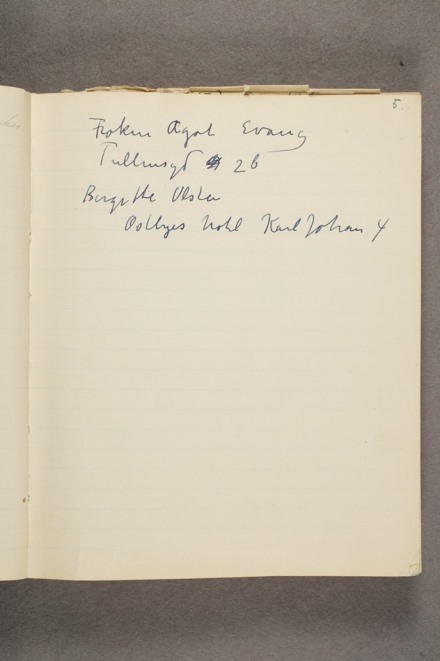 5.
Frøken Agot Evang
Tullinsgd 26
Birgitte Olsen
Ostbyes Hotel Karl Johan 4